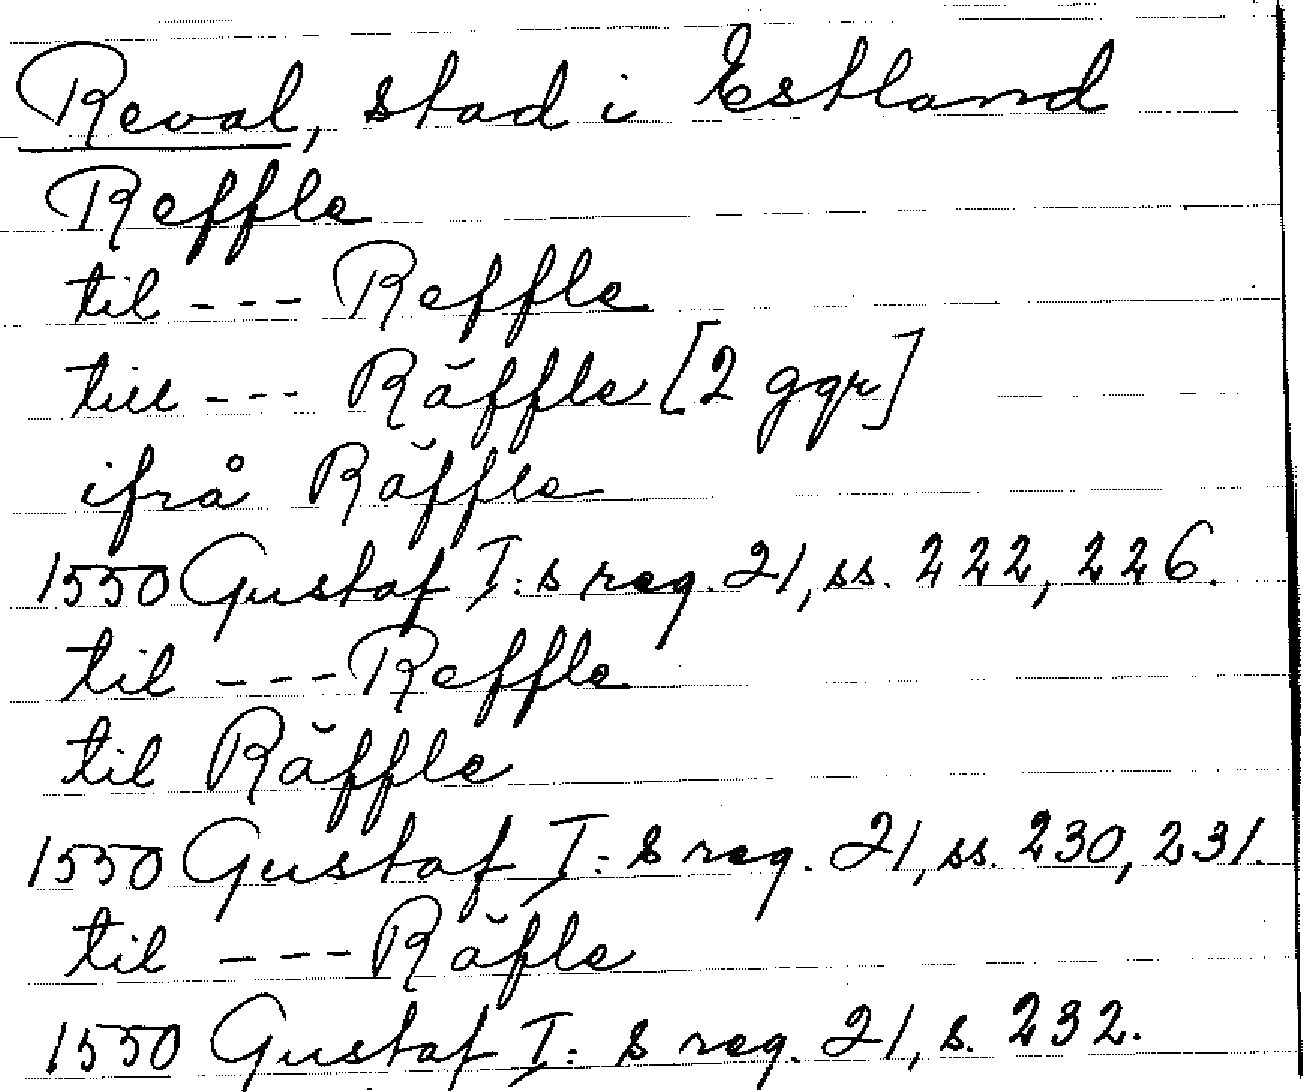 Reval, stad i Estland
Reffle
til --- Reffle
till --- Räffle [2 ggr]
ifrå Räffle
1550 Gustaf I:s reg. 21, ss. 222, 226.
til --- Reffle
til Räffle
1550 Gustaf I:s reg. 21, ss. 230, 231.
til --- Räfle
1550 Gustaf I:s reg. 21, s. 232.